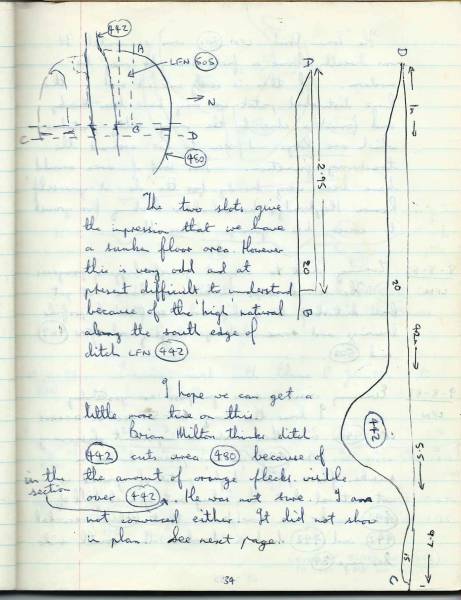 442
A
LFN 505
N
B
C
D
480
The two slots give
the impression that we have
a sunken floor area. However
this is very odd and at
present difficult to understand
because of the 'high' natural
along the south edge of
ditch LFN 442
I hope we can get a
little more time on this.
Brian Milton thinks ditch
442 cuts area 480 because of
the amount of orange flecks visible
in the
section
over 442. He was not sure. I am
not convinced either. It did not show
in plan. See next page.
34
A
2.95
20
B
D
20
442
5.5
9.7
15
C